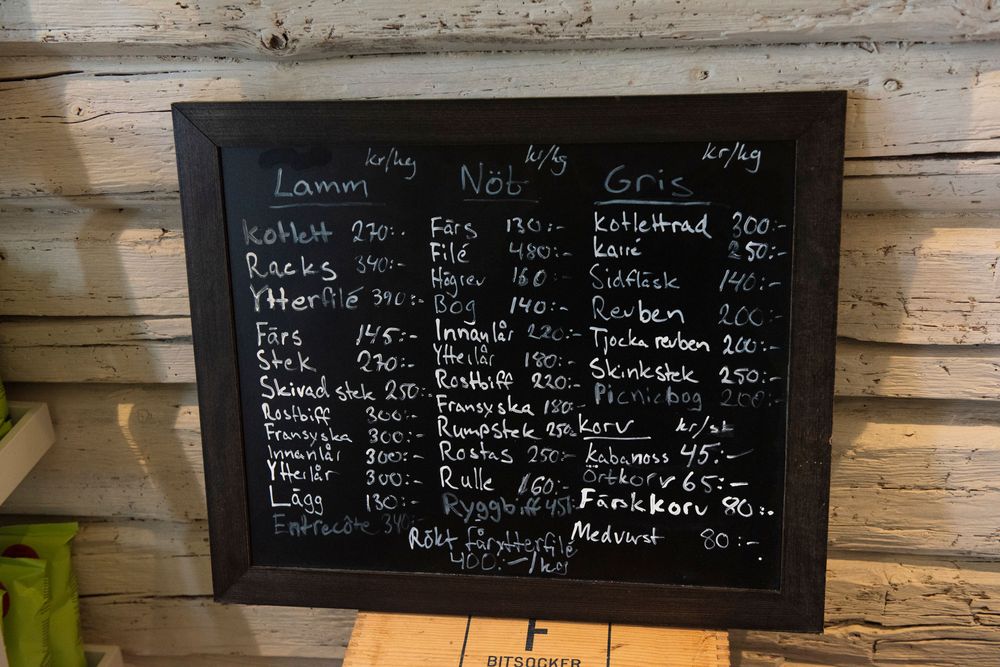 kr/kg
Lamm
Kotlett 270:-
Racks 340:-
Ytterfilé 390:-
Färs 145:-
Stek 270:-
Skivad stek 250:-
Rostbiff 300:-
Fransyska 300:-
Innanlår 300:-
Ytterlår 300:-
Lägg 130:-
Entrecôte 340:-
kr/kg
Nöt
Färs 130:-
Filé 480:-
Högrev 160:-
Bog 140:-
Innanlår 220:-
Ytterlår 180:-
Rostbiff 220:-
Fransyska 180:-
Rumpstek 250:-
Rostas 250:-
Rulle 160:-
Ryggbiff
kr/kg
Gris
Kotlettrad 300:-
Karré 250:-
Sidfläsk 140:-
Reuben 200:-
Tjocka reuben 200:-
Skinkstek 250:-
Picnicbog 200:-
Korv kr/st
Kabanoss 45:-
Örtkorv 65:-
Färskkorv 80:-
Medvurst 80:-
Rökt fårytterfilé
400:-/kg
F
BITSOCKER